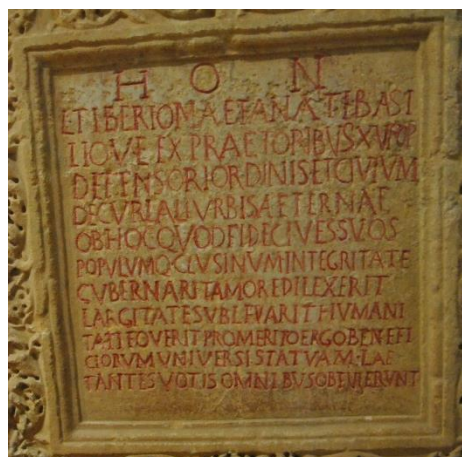 HON
L TIBERIO MAEFANATI BASI
LIO V E EX PRAETORIBVS XV POP
DEFENSORI ORDINIS ET CIVIVM
DECVRIALI VRBIS AETERNAE
OB HOC QVOD FIDE CIVES SVOS
POPVLVMQ CLVSINVM INTEGRITATE
GVBERNARIT AMORE DILEXERIT
LARGITATE SVBLEVARIT HVMANI
TATE FOVERIT PRO MERITO ERGO BENEFI
CIORVM VNIVERSI STATVAM LAE
TANTES VOTIS OMNIBVS OBTVLERVNT